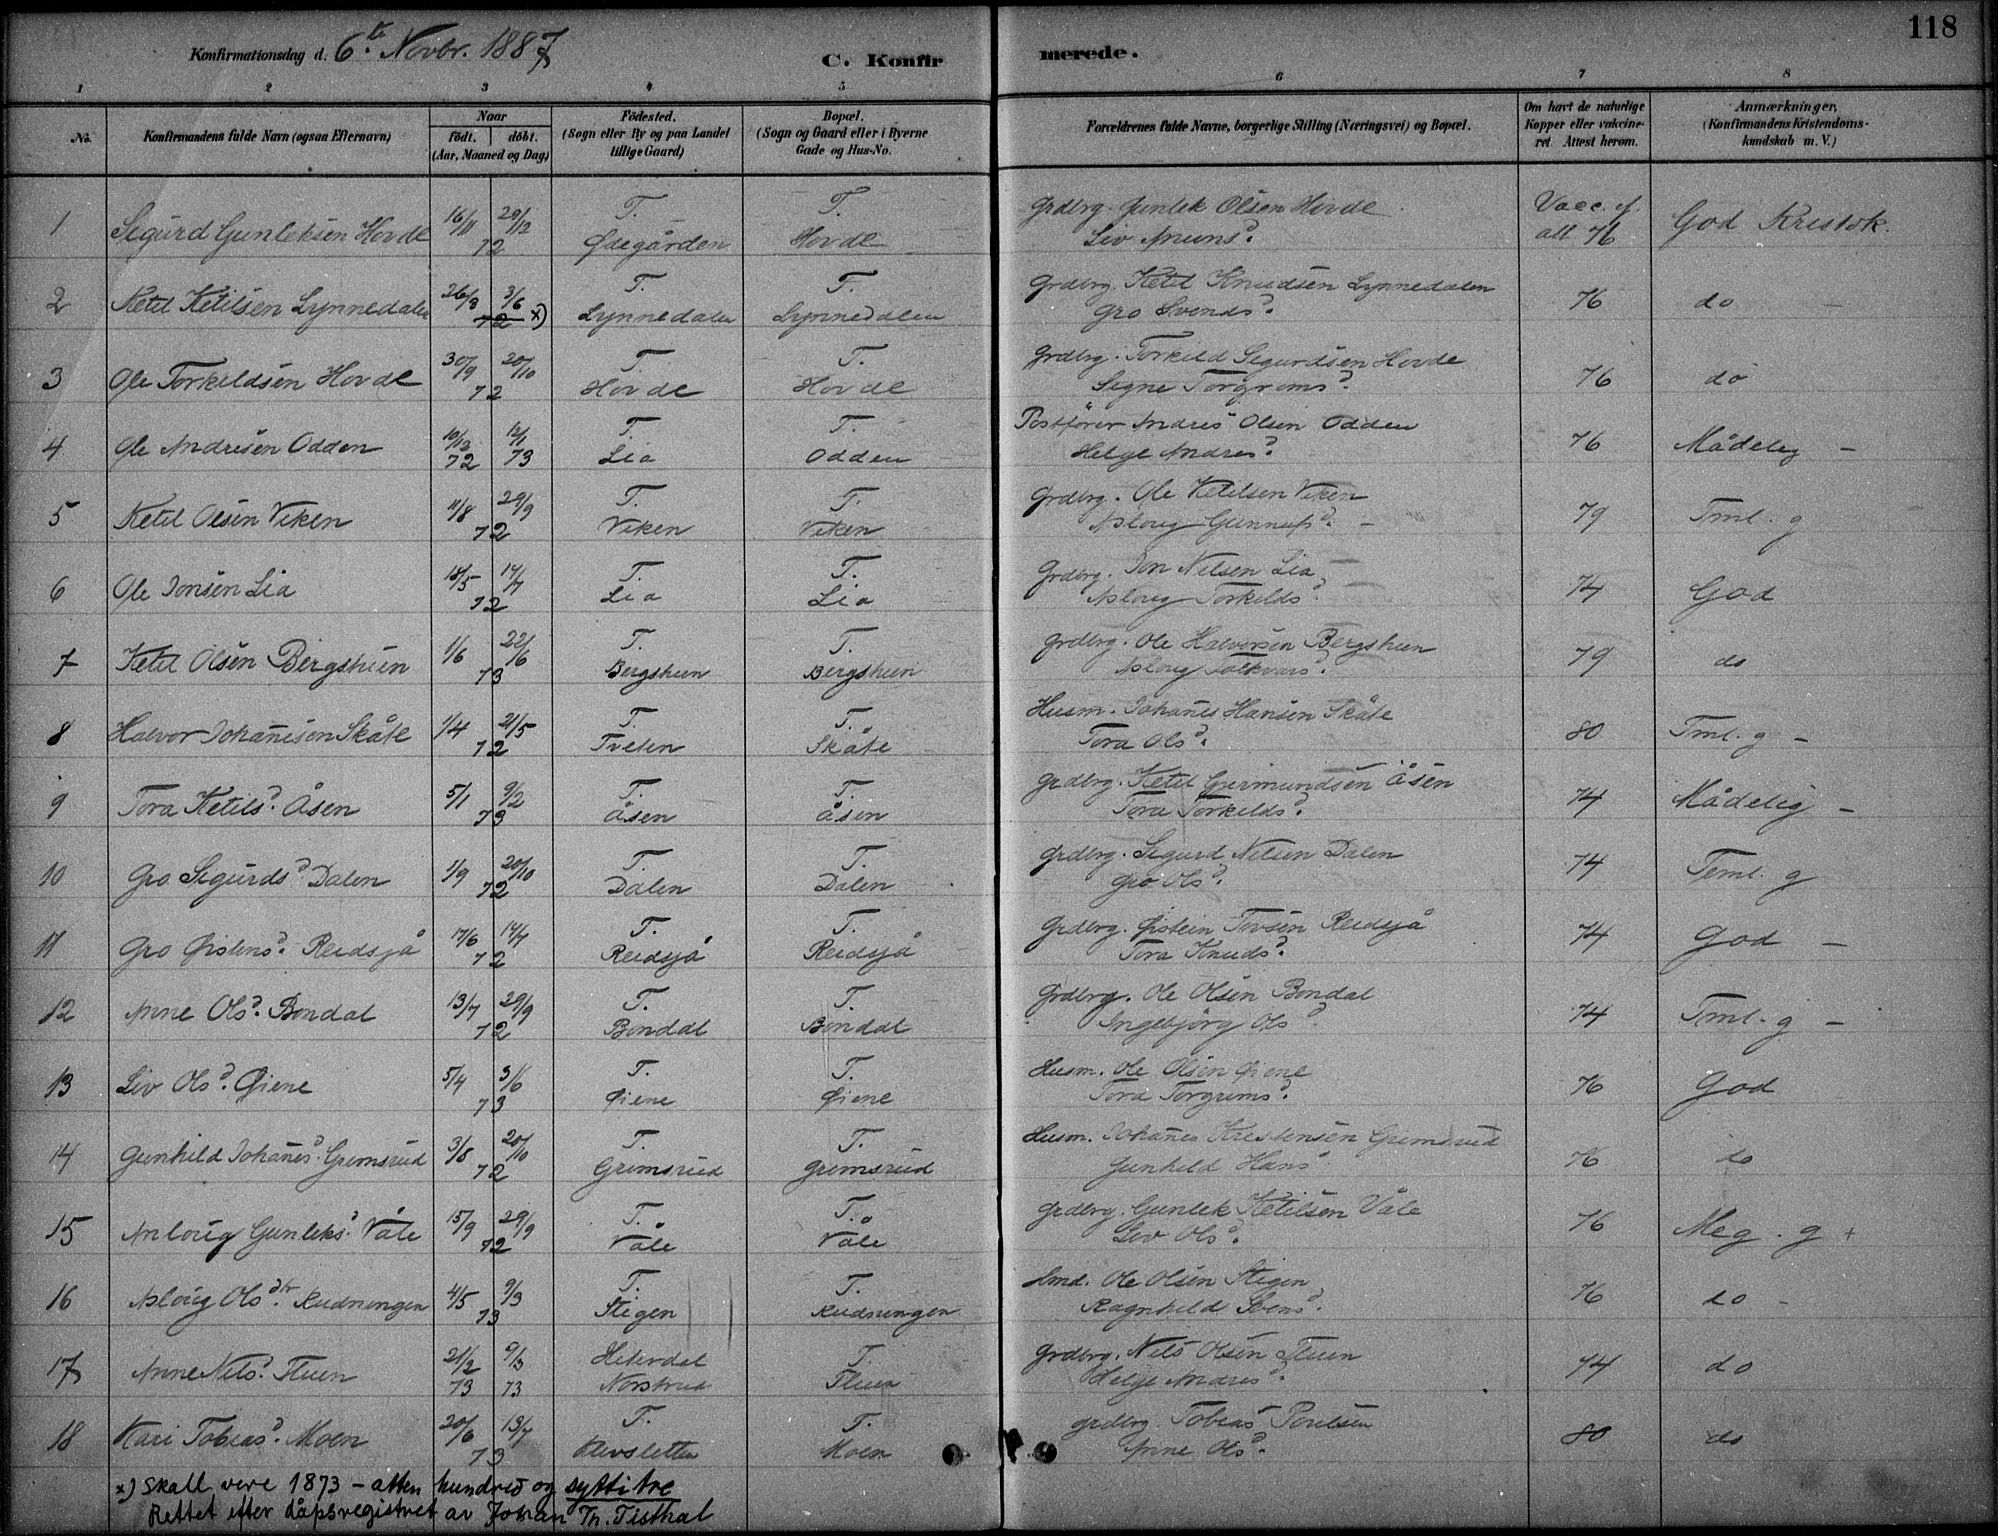 118
Konfirmationsdag d. 6.te Novbr. 1887
C. Konfirmerede.
1 2 3 4 5 6 7 8
No. Konfirmandens fulde Navn (ogsaa Efternavn) Naar født. døbt. (Aar, Maaned og Dag) Fødested. (Sogn eller By og paa Landet tillige Gaard) Bopæl. (Sogn og Gaard eller i Byerne Gade og Hus-No. Forældrenes fulde Navne, borgerlige Stilling (Næringsvei) og Bopæl. Om havt de naturlige Kopper eller vakcineret. Attest herom. Anmærkninger, (Konfirmandens Kristendomskundskab m. V.)
1 Sigurd Gunleksen Hovde 16/11 29/12 72 T. Ødegården T. Hovde Grdbrg. Gunlek Olsen Hovde Vacc. if. att 76 God Kristdk.
Liv Amunsd.
2 Ketil Ketilsen Lynnedalen 26/3 3/6 72 x) T. Lynnedalen T. Lynnedalen Grdbrg. Ketil Knudsen Lynnedalen 76 do
Gro Svendsd.
3 Ole Torkildsen Hovde 30/9 20/10 72 T. Hovde T. Hovde Grdbrg. Torkild Sigurdsen Hovde 76 do
Signe Torgrimsd.
4 Ole Andresen Odden 10/12 72 12/1 73 T. Lia T. Odden Postfører Andres Olsen Odden 76 Mådelig –
Helge Andresd.
5 Ketil Olsen Viken 11/8 29/9 72 T. Viken T. Viken Grdbrg. Ole Ketilsen Viken 79 Tml. g
Asloug Gunnufsd. –
6 Ole Jonsen Lia 18/5 14/7 72 T. Lia T. Lia Grdbrg. Jon Nilsen Lia 74 God
Asloug Torkildsd.
7 Ketil Olsen Bergshuen 1/6 22/6 73 T. Bergshuen T. Bergshuen Grdbrg. Ole Halvorsen Bergshuen 79 do
Asloug Folkvarsd.
8 Halvor Johan̄esen Skåte 1/4 21/5 72 T. Tveten T. Skåte Husm. Johan̄es Hansen Skåte 80 Tml. g –
Tora Olsd.
9 Tora Ketilsd. Åsen 5/1 9/2 73 T. Åsen T. Åsen Grdbrg. Ketil Germundsen Åsen 74 Mådelig –
Tora Torkildsd.
10 Gro Sigurdsd Dalen 1/9 20/10 72 T. Dalen T. Dalen Grdbrg. Sigurd Nilsen Dalen 74 Teml. g
Gro Olsd.
11 Gro Østensd. Reidsjå 17/6 14/7 72 T. Reidsjå T. Reidsjå Grdbrg. Østein Tovsen Reidsjå 74 God –
Tora Knudsd.
12 Anne Olsd. Bondal 13/7 29/9 72 T. Bondal T. Bondal Grdbrg. Ole Olsen Bondal 74 Tml. g –
Ingebjørg Olsd
13 Liv Olsd. Øiene 5/4 3/6 73 T. Øiene T. Øiene Husm. Ole Olsen Øiene 76 God
Tora Torgrimsd.
14 Gunhild Johan̄esd. Grimsrud 3/8 20/10 72 T. Grimsrud T. Grimsrud Husm. Johan̄es Kristensen Grimsrud 76 do
Gunhild Hansd
15 Anloug Gunleksd. Våle 15/9 29/9 72 T. Våle T. Våle Grdbrg. Gunlek Ketilsen Våle 76 Meg. g +
Liv Olsd.
16 Asloug Olsdtr. Rudningen 4/5 9/3 73 T. Stigen T. Rudningen Ole Olsen Stigen 76 do –
Ragnhild Svensd.
17 Anne Nilsd. Fluen 21/2 73 9/3 73 Hiterdal Norstrud T. Fluen Grdbrg. Nils Olsen Fluen 74 do
Helge Andresd.
18 Kari Tobiasd. Moen 20/6 13/7 73 T. Klevsletten T. Moen Grdbrg. Tobias Povelsen 80 do
Anne Olsd.
x) Skall vere 1873 – atten hundred og sytti tre
Rettet etter dåpsregistret av Johan Th. Tisthal